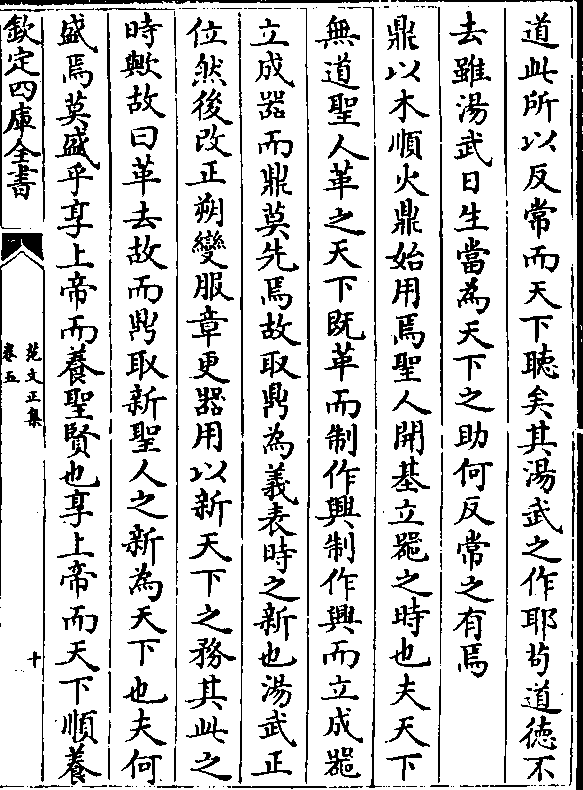 道此所以反常而天下聽矣其湯武之作耶茍道德不
去雖湯武日生當為天下之助何反常之有焉
鼎以木順火鼎始用焉聖人開基立器之時也夫天下
無道聖人革之天下既革而制作興制作興而立成器
立成器而鼎莫先焉故取鼎為義表時之新也湯武正
位然後改正朔變服章更器用以新天下之務其此之
時歟故曰革去故而鼎取新聖人之新為天下也夫何
盛焉莫盛乎享上帝而養聖賢也享上帝而天下順養
欽定四庫全書
范文正集
卷五
十